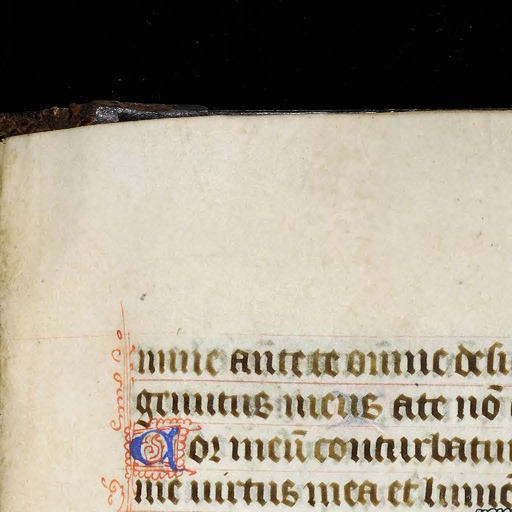 mine ante te omne desi
gemitus meus a te nō
Cor meū conturbatum
me uirtus mea et lumē